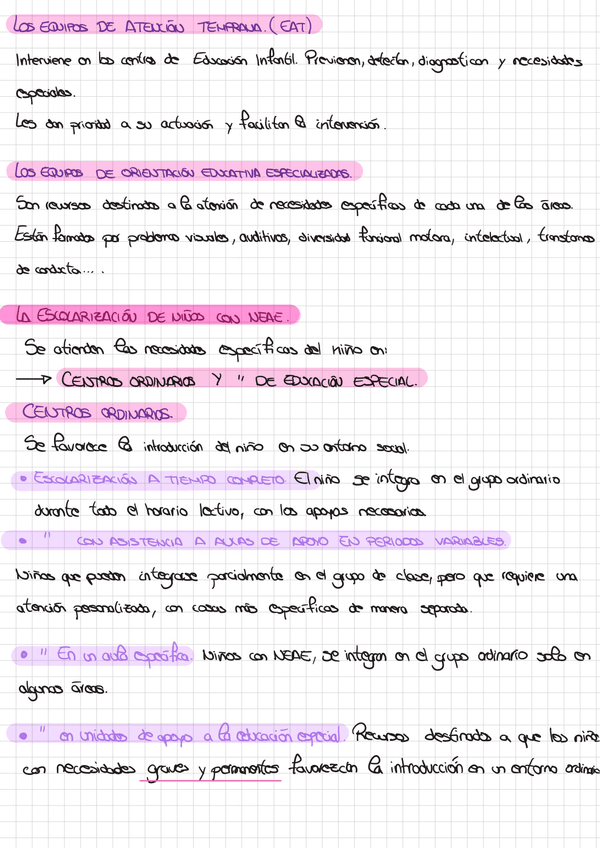 LOS EQUIPOS DE ATENCIÓN TEMPRANA. (EAT)
Interviene en los centros de Educación Infantil. Previenen, detectan, diagnostican y necesidades
especiales.
Les dan prioridad a su actuación y facilitan la intervención.
LOS EQUIPOS DE ORIENTACIÓN EDUCATIVA ESPECIALIZADAS.
Son recursos destinados a la atención de necesidades específicas de cada una de las áreas.
Están formados por problemas visuales, auditivos, diversidad funcional motora, intelectual, trastornos
de conducta... .
LA ESCOLARIZACIÓN DE NIÑOS CON NEAE.
Se atienden las necesidades específicas del niño en:
→ CENTROS ORDINARIOS Y " DE EDUCACIÓN ESPECIAL.
CENTROS ORDINARIOS.
Se favorece la introducción del niño en su entorno social.
• ESCOLARIZACIÓN A TIEMPO COMPLETO. El niño se integra en el grupo ordinario
durante todo el horario lectivo, con los apoyos necesarios.
• " CON ASISTENCIA A AULAS DE APOYO EN PERIODOS VARIABLES.
Niños que pueden integrase parcialmente en el grupo de clase, pero que requiere una
atención personalizada, con cosas más específicas de manera separada.
• " En un aula específica. Niños con NEAE, se integran en el grupo ordinario solo en
algunas áreas.
• " en unidades de apoyo a la educación especial. Recursos destinados a que los niños
con necesidades graves y permanentes favorezcan la introducción en un entorno ordinario